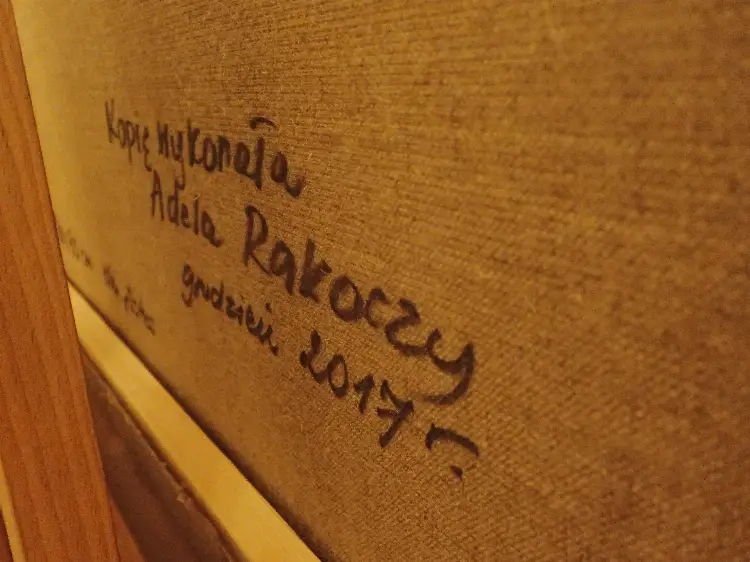 Kopię wykonała
Adela Rakoczy
grudzień 2017 r.